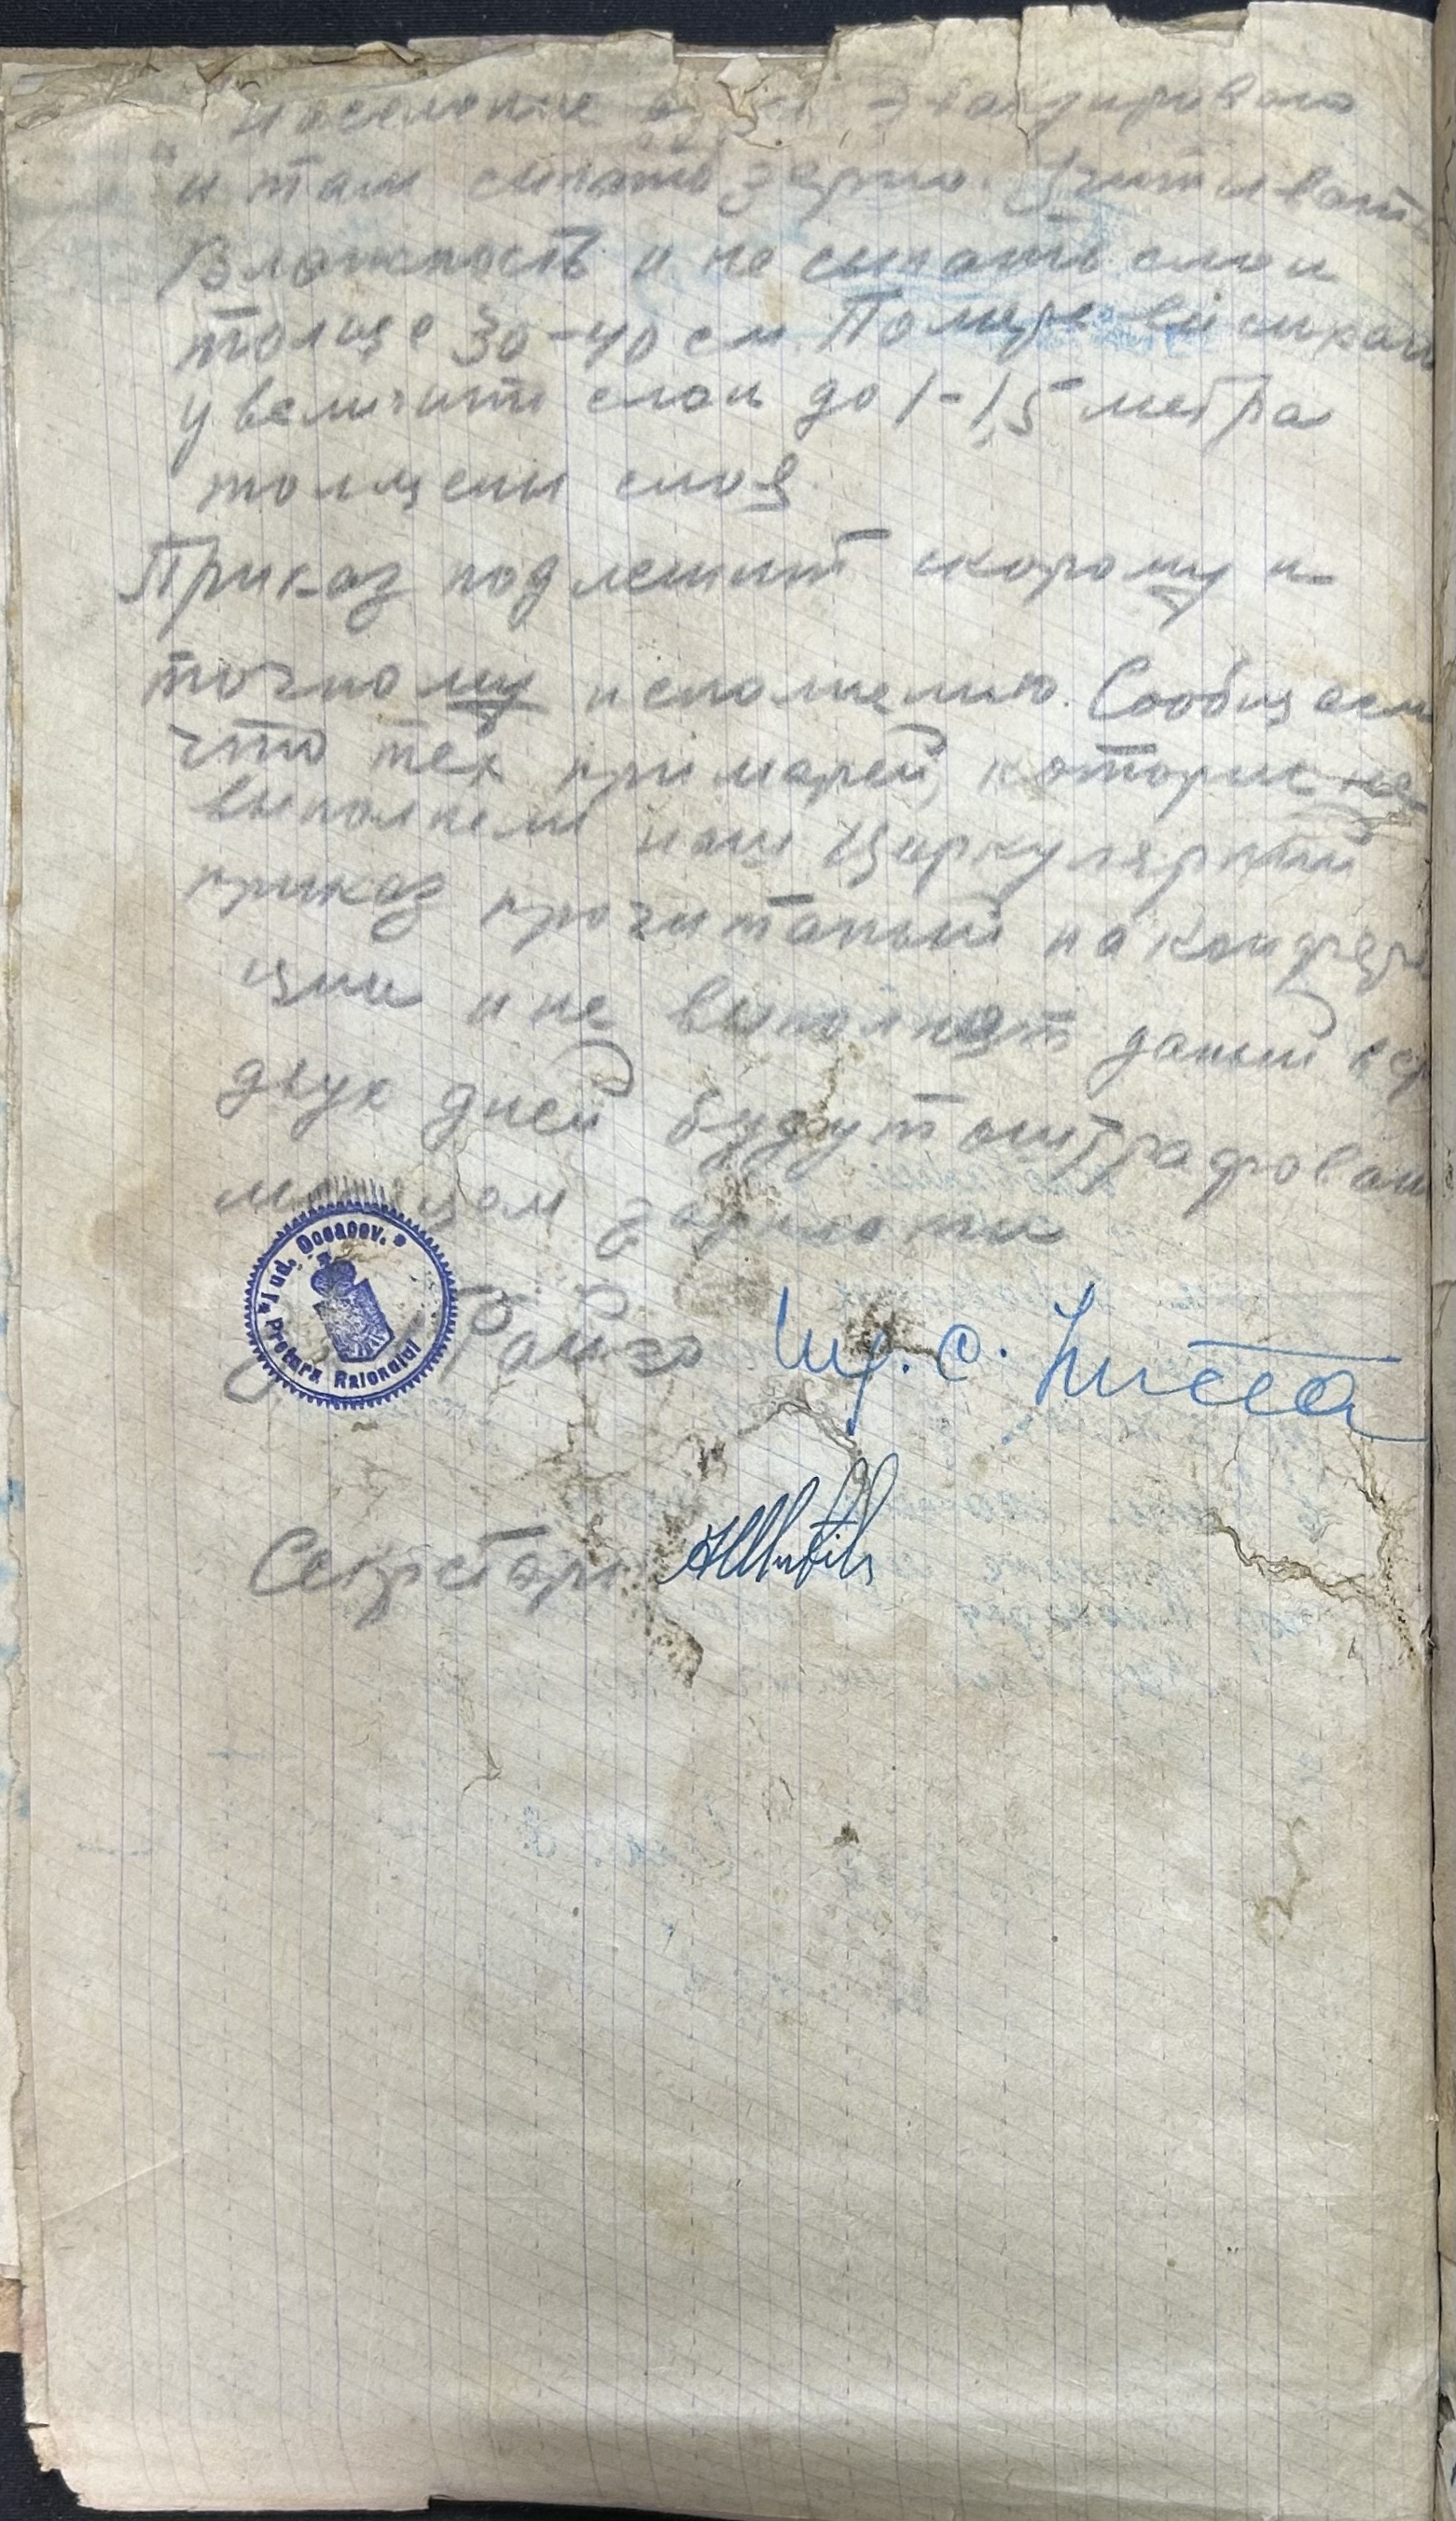 население эвакуировано
и там сыпать зерно. Учитывать
Влажность и не сыпать слои
толще 30-40 см. Помере высыхани
увеличить слои до 1-1,5 метра
толщены слоя
Приказ подлежит скорому и
точному исполнению. Сообщаем
что тех примарей, которие не
выполнели наш Циркулярный
приказ прочитаный на конфере
ции и не выполнят даный в ср
двух дней будут оштрафован
месяцом зарплати
Рай
Ш. С.
Секретарь
Jud. Oceacov.
Pretura Raionului